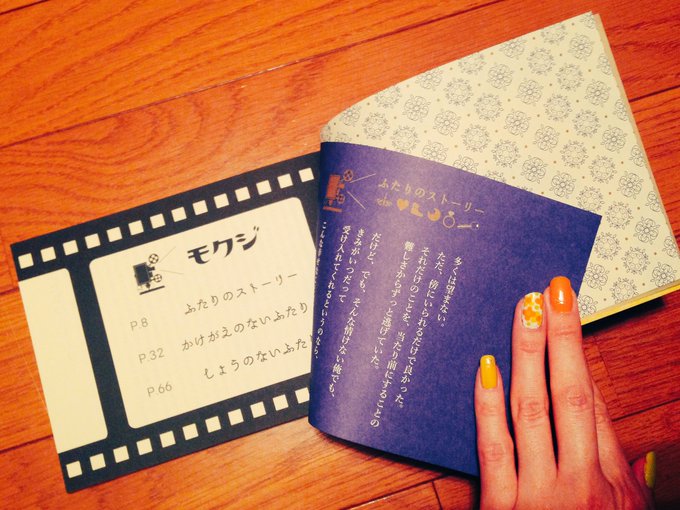 モクジ
P.8 ふたりのストーリー
P.32 かけがえのないふたり
P.66 しょうのないふた
ふたりのストーリー
多くは望まない
ただ、傍にいられるだけで良かった。
それだけのことを、当たり前にすることの
難しさからずっと逃げていた。
だけど、でも、そんな情けない俺でも、
きみがいつだって
受け入れてくれるというのなら、